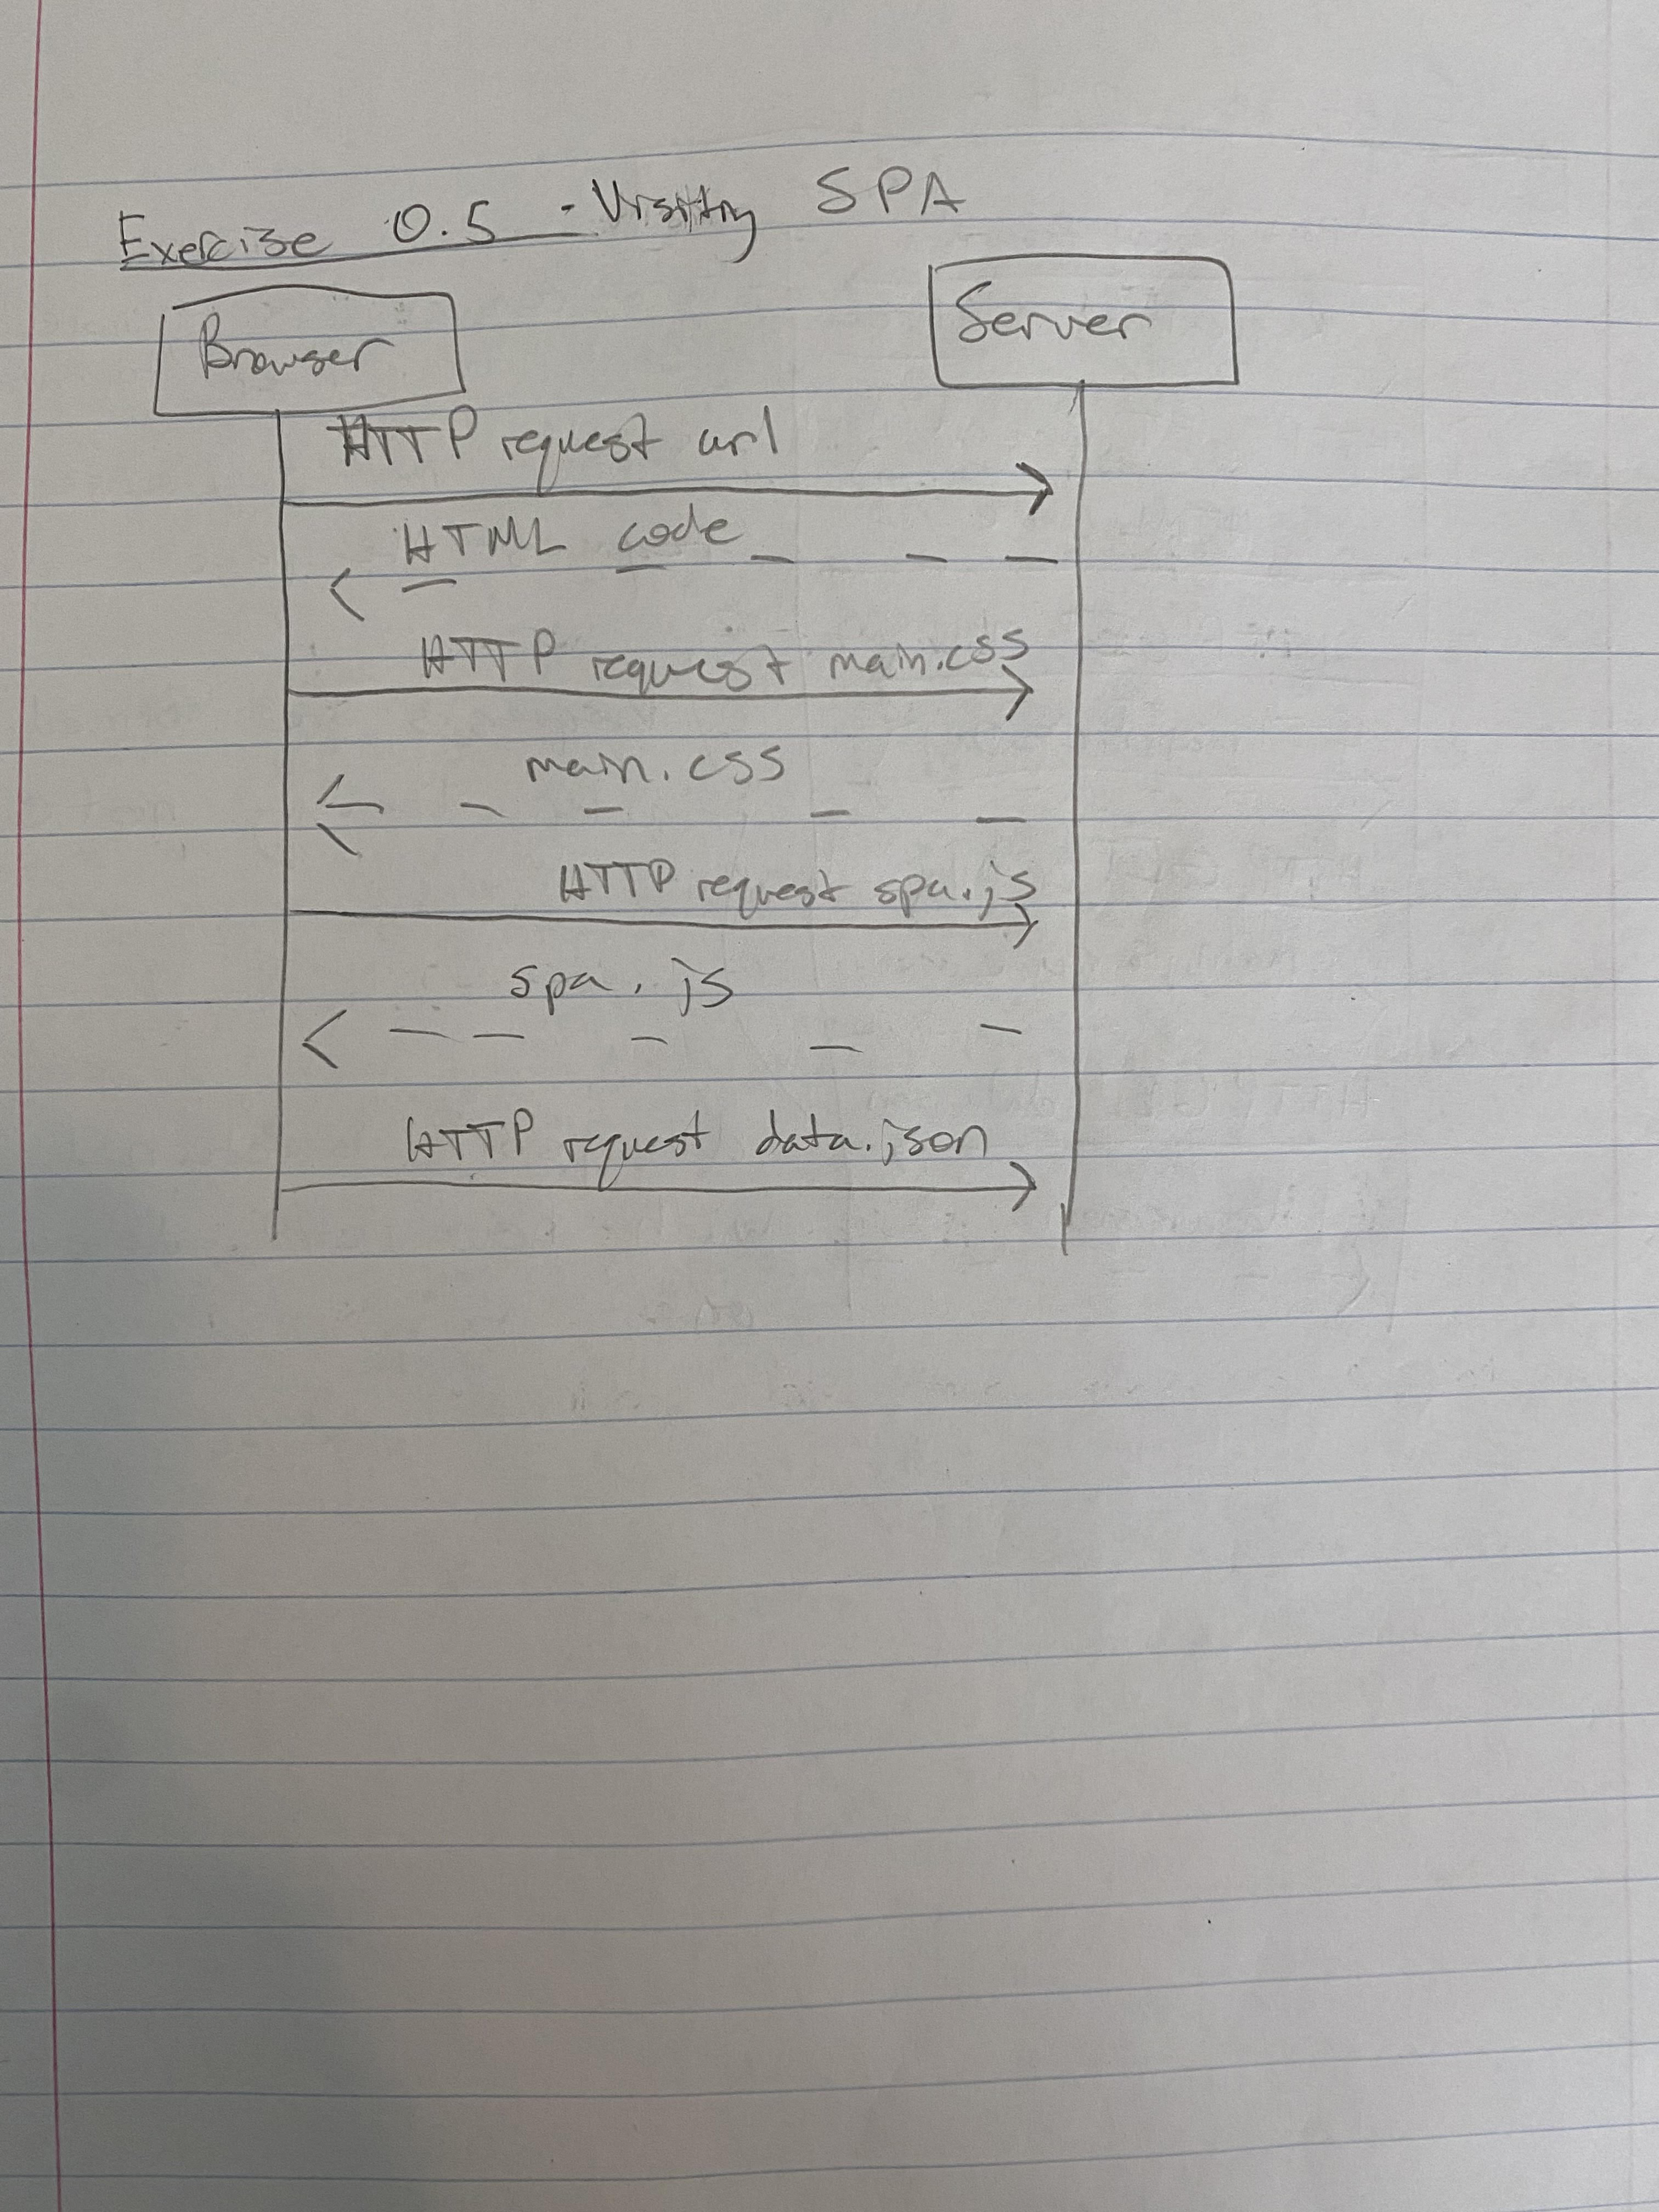 Exercise 0.5 - Visiting SPA
Browser
Server
HTTP request url
HTML code
HTTP request main.css
main.css
HTTP request spa.js
spa.js
HTTP request data.json